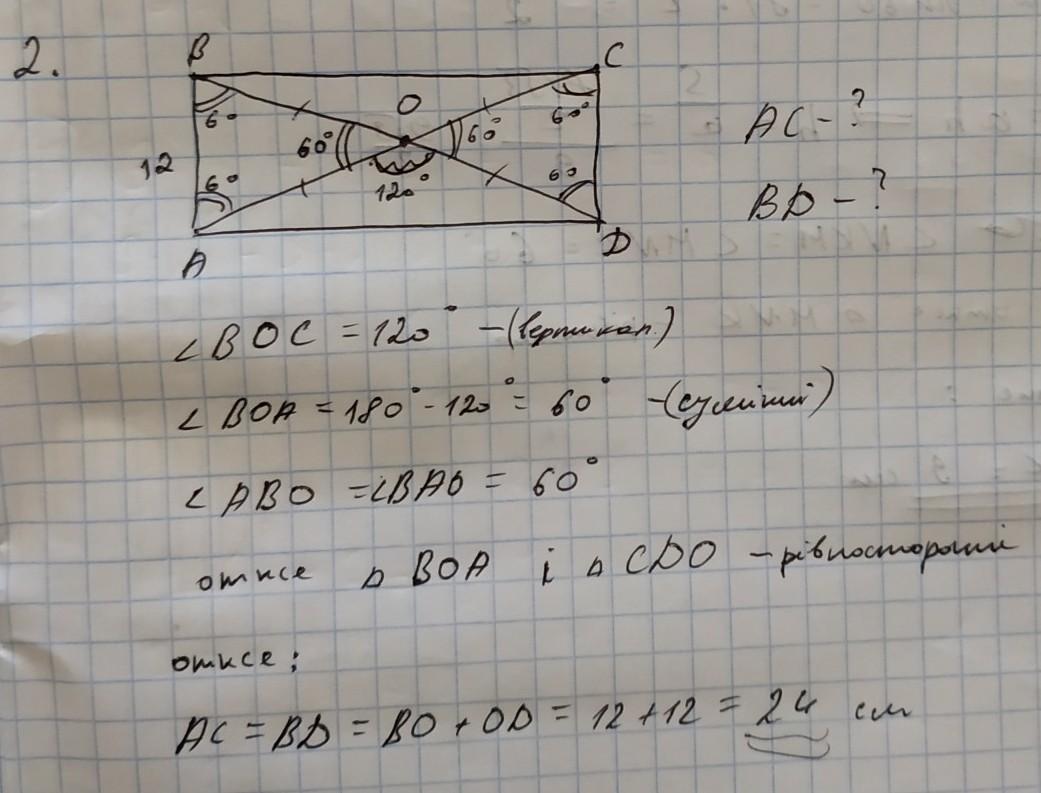 2.
B
C
O
60°
60°
60°
60°
12
60°
60°
120°
A
D
AC - ?
BD - ?
∠BOC = 120° - (вертикал.)
∠BOA = 180° - 120° = 60° - (суміжні)
∠ABO = ∠BAO = 60°
отже △BOA і △CDO - рівносторонні
отже:
AC = BD = BO + OD = 12 + 12 = 24 см